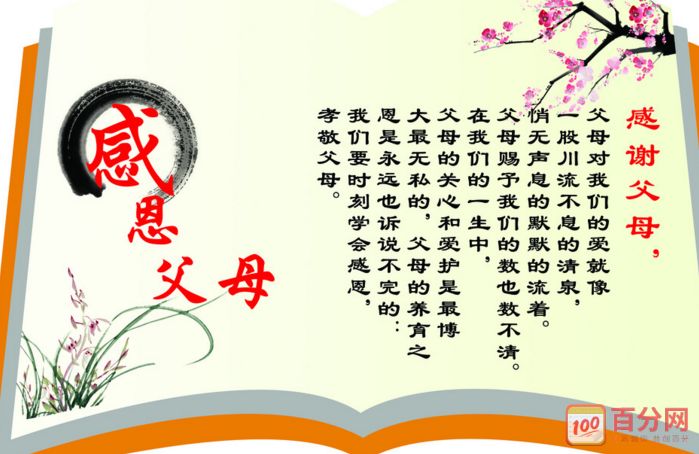 感谢父母，
父母对我们的爱就像
一股川流不息的清泉，
悄无声息的默默的流着。
父母赐予我们的数也数不清。
在我们的一生中，
父母的关心和爱护是最博
大最无私的，父母的养育之
恩是永远也诉说不完的：
我们要时刻学会感恩，
孝敬父母。
感恩父母
100 百分网
共创百分